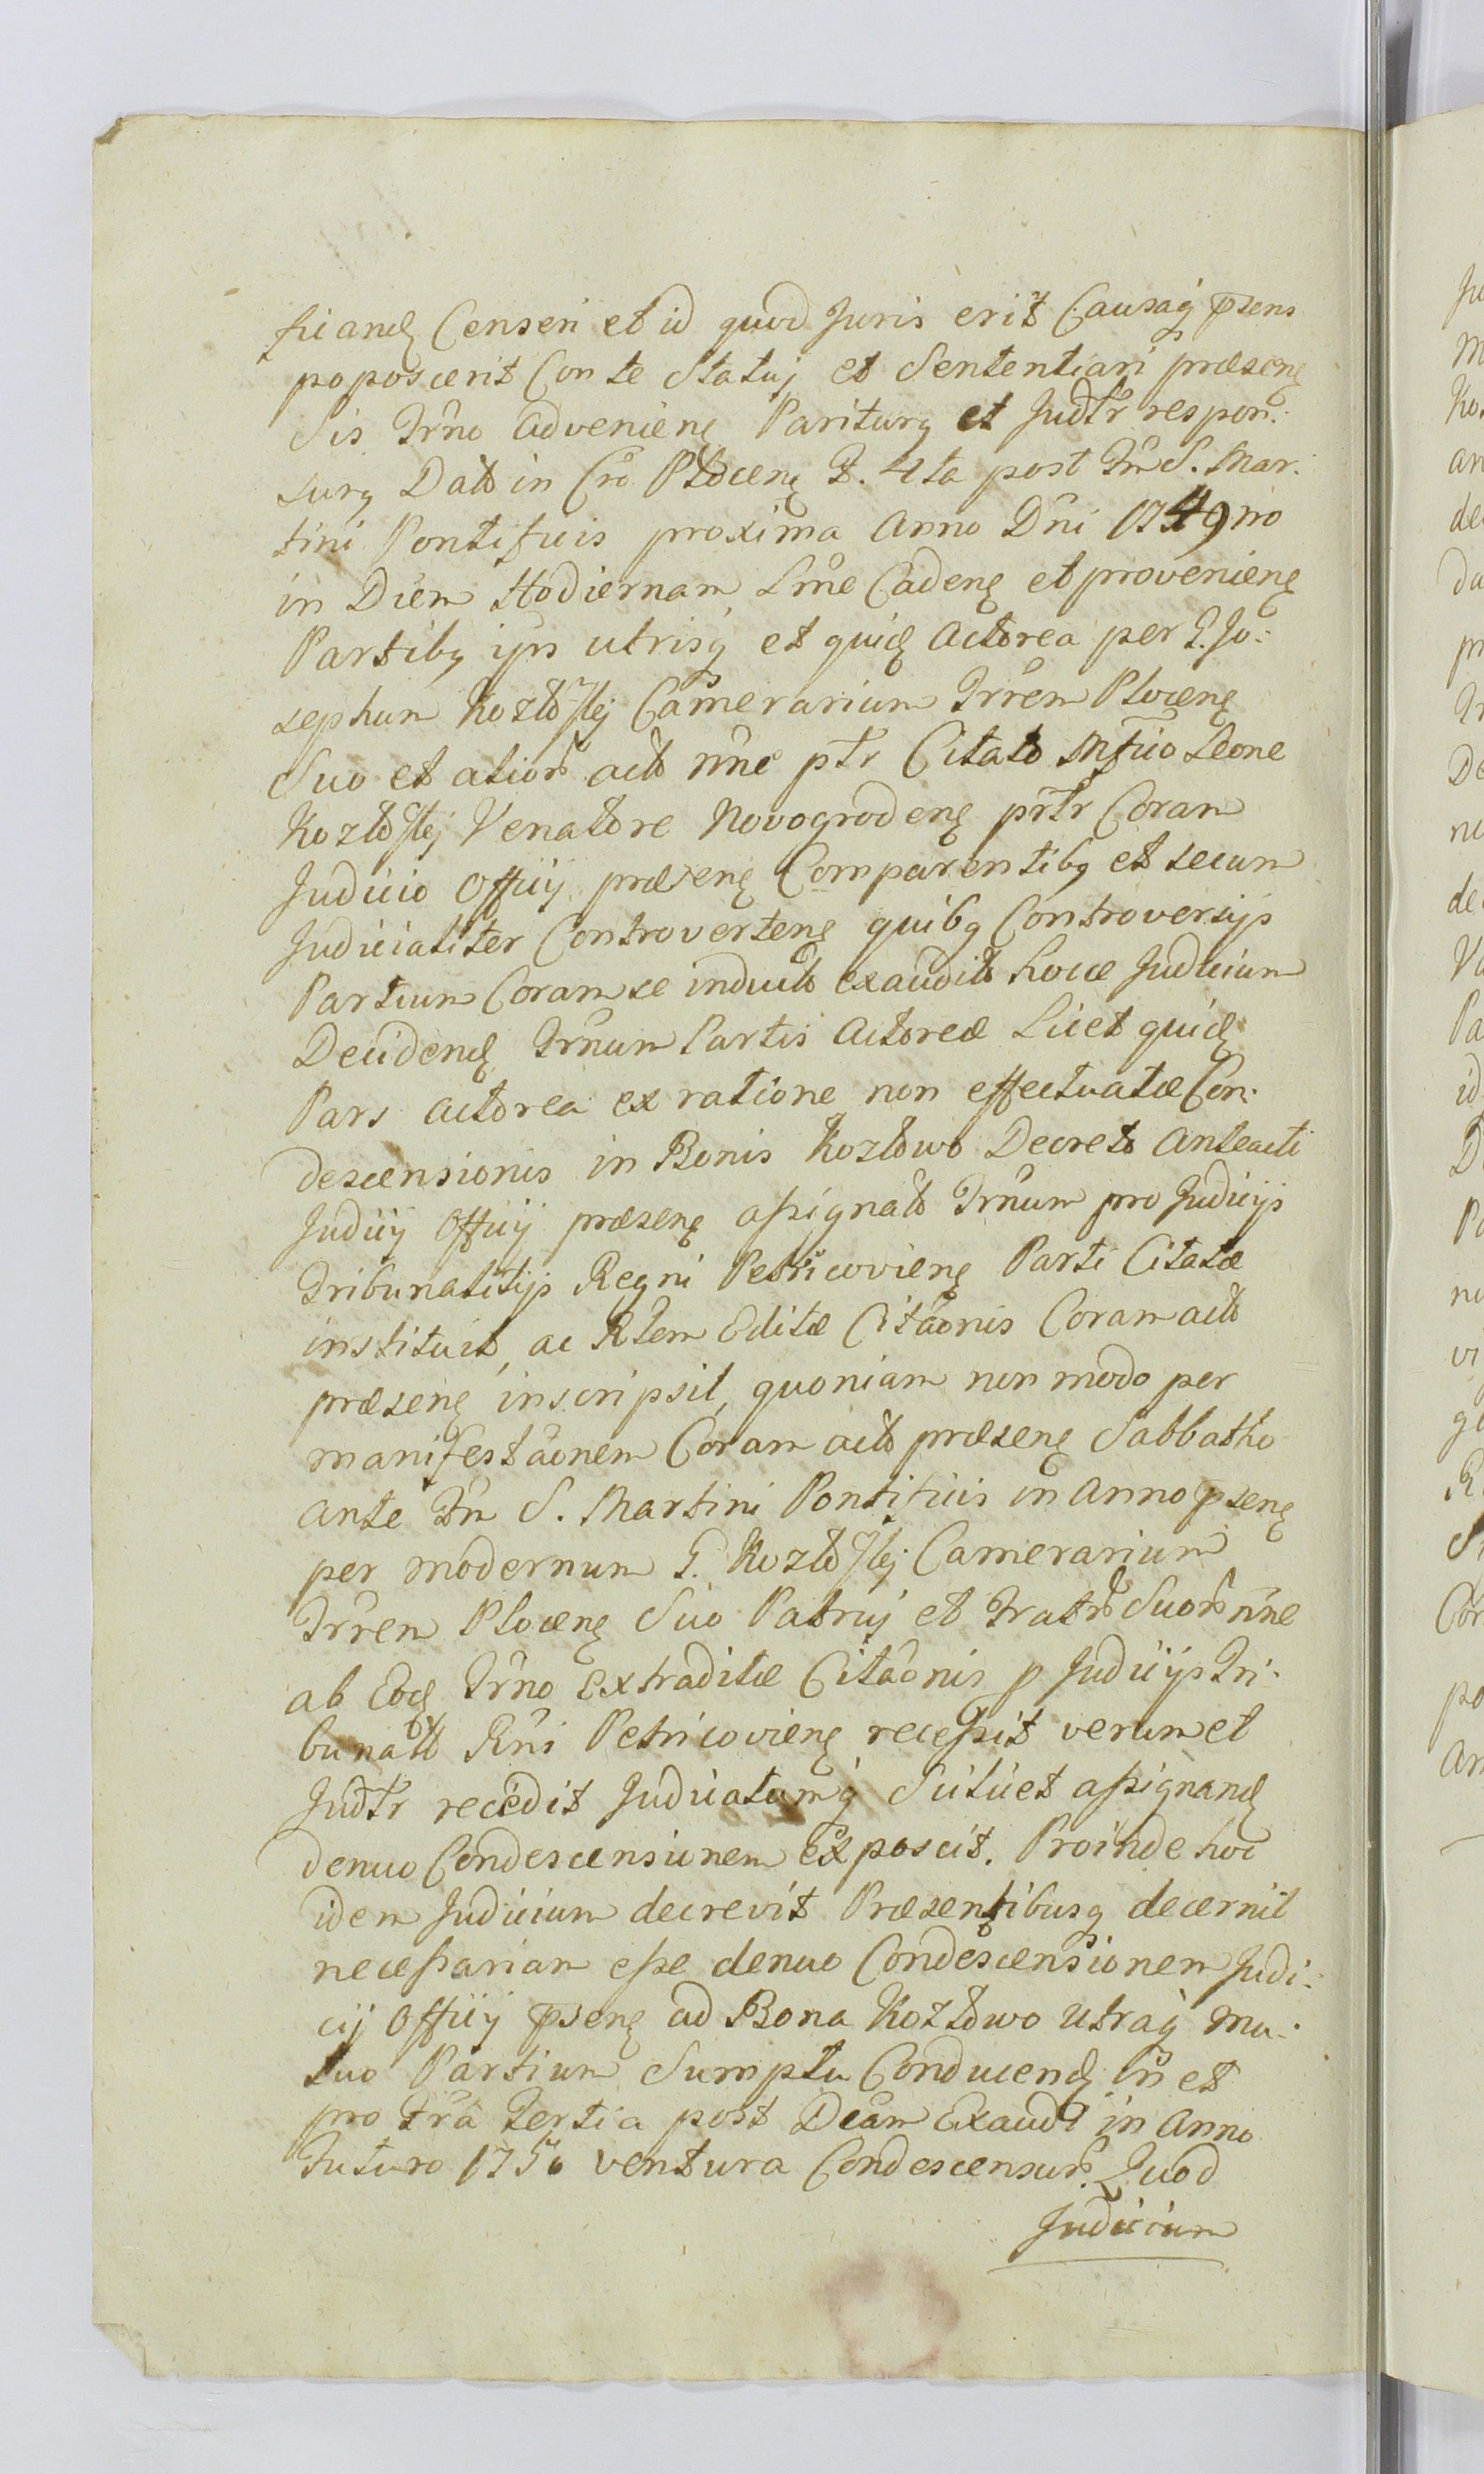 ficand Censeri et id quod Juris erit Causaq psens
poposcerit Con te Statuj et Sententiari præsenę
Sis Trno Advenienę Pariturq et Judtr respon:
surq Datt in Cro Plocenę F. 4ta post Fm S. Mar:
tini Pontificis proxima Anno Dni 1749no
in Diem Hodiernam Lme Cadenę et provenienę
Partibq ips utrisq et quid Actorea per G. Jo:
sephum Kozłoskj Camerarium Trrem Plocenę
Suo et alior actt nne ptr Citato Mfico Leone
Kozłoskj Venatore Novogrodenę prtr Coram
Judicio Officij præsenę Comparentibq et secum
Judicialiter Controvertenę quibq Controversijs
Partium Coram se induct exaudit hocce Judicium
Decidend Trnum Partis Actoreæ Licet quid
Pars Actorea ex ratione non effectuatæ Con:
descensionis in Bonis Kozłowo Decreto Anteacti
Judicij Officij præsenę assignatt Trnum pro Judicijs
Tribunalitijs Regni Petricovienę Parti Citatæ
instituit, ac Rlem Editæ Citaonis Coram actt
præsenę inscripsit, quoniam non modo per
manifestaonem Coram actt præsenę Sabbatho
Ante Fm S. Martini Pontificis in Anno psenę
per modernum G. Kozłoskj Camerarium
Trrem Plocenę Suo Patruj et Fratr Suor nne
ab Eod Trno Extraditæ Citaonis p Judicijs Tri:
bunatt Rni Petricovienę recessit verum et
Judtr recedit Judicatumq Scilicet assignand
denuo Condescensionem exposcit. Proinde hoc
idem Judicium decrevit Præsentibusq decernit
necessariam esse denuo Condescensionem Judi:
cij Officij psenę ad Bona Kozłowo Utraq mu:
tuo Partium Sumptu Conducend in et
pro Fra tertia post Dcam Exaudi in Anno
Futuro 1750 ventura Condescensur. Quod
Judicium